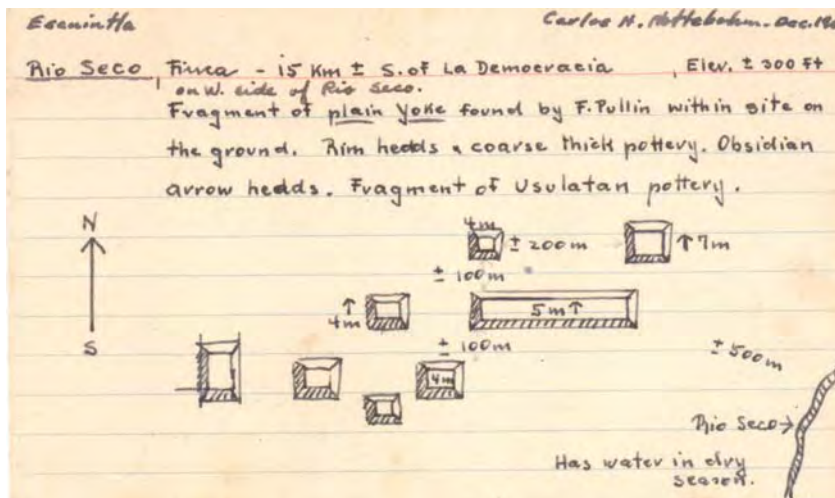 Escuintla Carlos H. Nottebohm. Dec.
Rio Seco, Finca - 15 Km ± S. of La Democracia, Elev. ± 300 Ft
on W. side of Rio Seco.
Fragment of plain Yoke found by F. Pullin within site on
the ground. Rim hedds & coarse thick pottery. Obsidian
arrow hedds. Fragment of Usulatan pottery.
N
4m
± 200m
↑ 7m
± 100m
↑
4m
5m ↑
S
± 100m
± 500m
4m
Rio Seco →
Has water in dry
season.